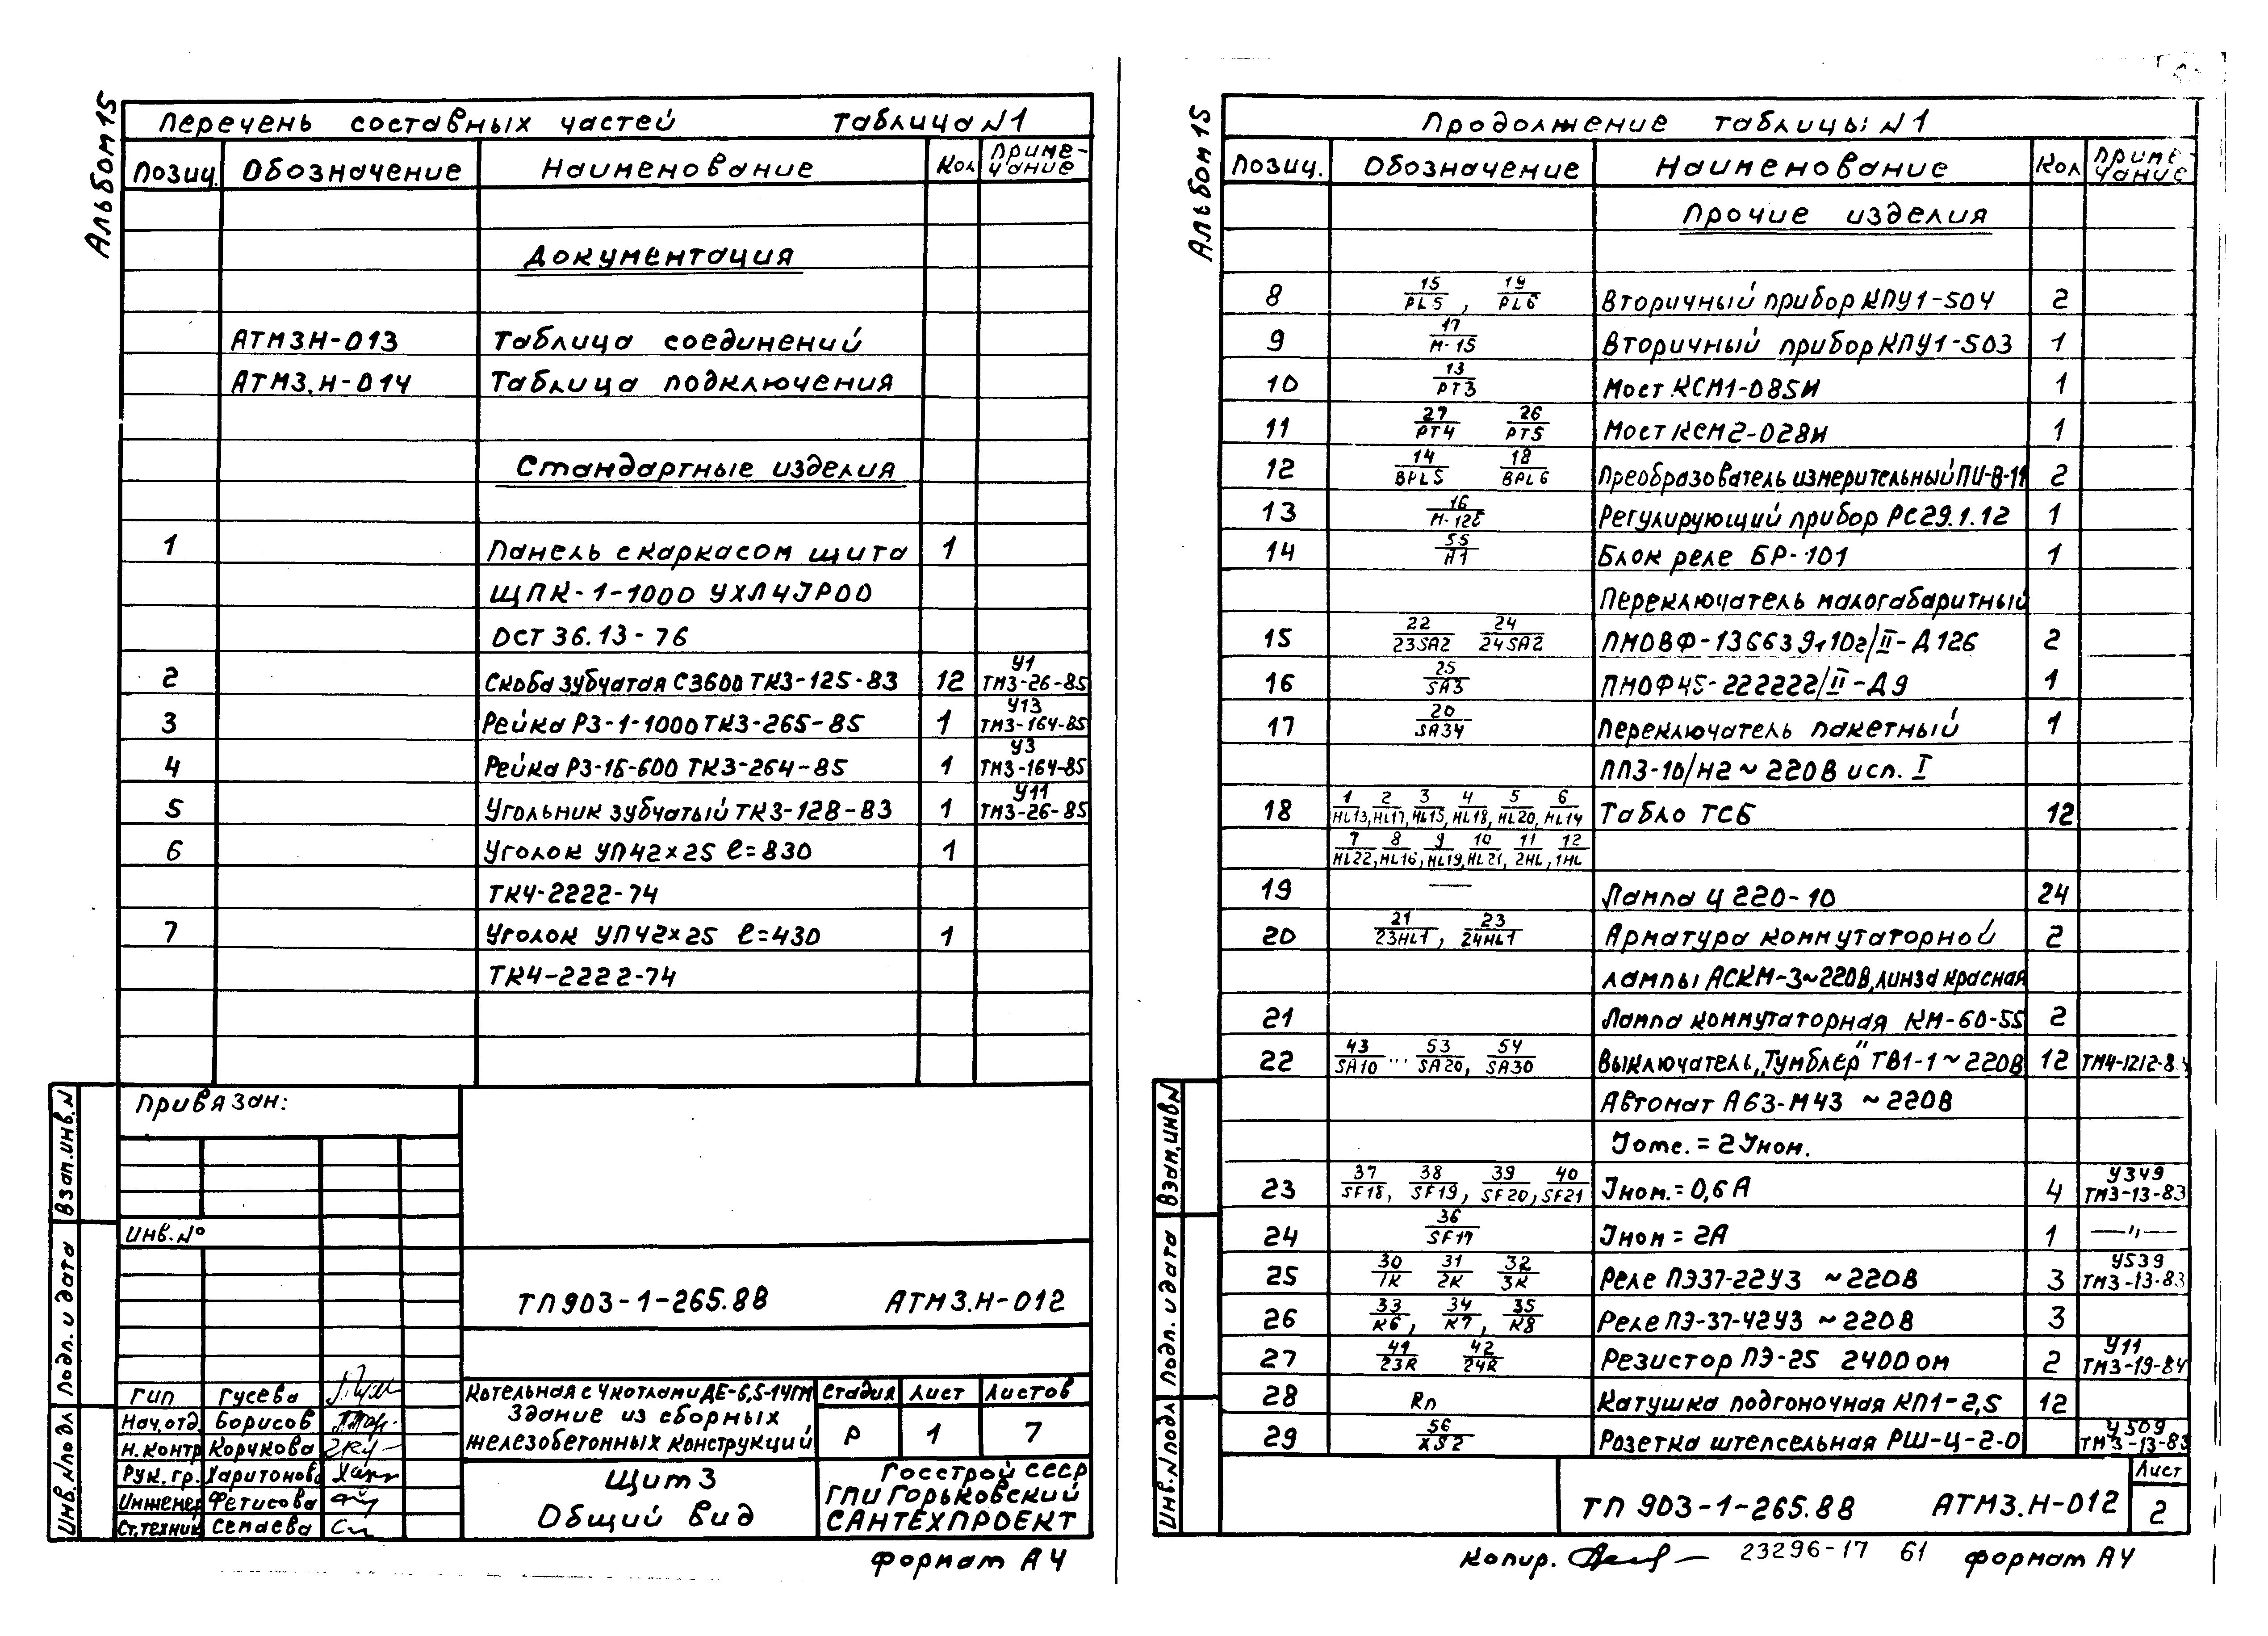 Альбом 15
Перечень составных частей Таблица N1
Позиц. Обозначение Наименование Кол Приме-чание
Документация
АТМ3.Н-013 Таблица соединений
АТМ3.Н-014 Таблица подключения
Стандартные изделия
1 Панель с каркасом щита 1
ЩПК-1-1000 УХЛ4 JР00
ОСТ 36.13-76
2 Скоба зубчатая С3600 ТК3-125-83 12 У1 ТМ3-26-85
3 Рейка Р3-1-1000 ТК3-265-85 1 У13 ТМ3-164-85
4 Рейка Р3-1Б-600 ТК3-264-85 1 У3 ТМ3-164-85
5 Угольник зубчатый ТК3-128-83 1 У11 ТМ3-26-85
6 Уголок УП42х25 ℓ=830 1
ТК4-2222-74
7 Уголок УП42х25 ℓ=430 1
ТК4-2222-74
Привязан:
Инв.N°
ТП 903-1-265.88 АТМ3.Н-012
Гип Гусева
Нач.отд. Борисов
Н.контр Корчкова
Рук.гр. Харитонова
Инженер Фетисова
Ст.техник Семаева
Котельная с 4 котлами ДЕ-6,5-14ГМ
Здание из сборных
железобетонных конструкций
Стадия Лист Листов
Р 1 7
Щит 3
Общий вид
Госстрой СССР
ГПИ Горьковский
САНТЕХПРОЕКТ
Взам.инв.N
Подп. и дата
Инв.N подл
формат А4
Альбом 15
Продолжение таблицы N1
Позиц. Обозначение Наименование Кол Приме-чание
Прочие изделия
8 15/PL5, 19/PL6 Вторичный прибор КПУ1-504 2
9 17/М-15 Вторичный прибор КПУ1-503 1
10 13/РТ3 Мост КСМ1-085И 1
11 27/РТ4 26/РТ5 Мост КСМ2-028И 1
12 14/BPL5 18/BPL6 Преобразователь измерительный ПИ-В-11 2
13 16/Н-12Б Регулирующий прибор РС29.1.12 1
14 55/А1 Блок реле БР-101 1
Переключатель малогабаритный
15 22/23SA2 24/24SA2 ПМОВФ-136639,10г/II-Д126 2
16 25/SA3 ПМОФ45-222222/II-Д9 1
17 20/SA34 Переключатель пакетный 1
ПП3-10/Н2 ~ 220В исп. I
18 1/HL13, 2/HL17, 3/HL15, 4/HL18, 5/HL20, 6/HL14 Табло ТСБ 12
7/HL22, 8/HL16, 9/HL19, 10/HL21, 11/2HL, 12/1HL
19 — Лампа Ц 220-10 24
20 21/23HL1, 23/24HL1 Арматура коммутаторной 2
лампы АСКМ-3~220В, линза красная
21 Лампа коммутаторная КМ-60-55 2
22 43/SA10 ... 53/SA20, 54/SA30 Выключатель „Тумблер" ТВ1-1 ~ 220В 12 ТМ4-1212-84
Автомат А63-М43 ~220В
Jотс. = 2Jном.
23 37/SF18, 38/SF19, 39/SF20, 40/SF21 Jном.= 0,6А 4 У349 ТМ3-13-83
24 36/SF17 Jном = 2А 1 —„—
25 30/1К 31/2К 32/3К Реле ПЭ37-22У3 ~220В 3 У539 ТМ3-13-83
26 33/К6, 34/К7, 35/К8 Реле ПЭ-37-42У3 ~220В 3
27 41/23R 42/24R Резистор ПЭ-25 2400 ом 2 У11 ТМ3-19-84
28 Rп Катушка подгоночная КП1-2,5 12
29 56/XS2 Розетка штепсельная РШ-Ц-2-0 У509 ТМ3-13-83
ТП 903-1-265.88 АТМ3.Н-012
Лист
2
Взам.инвN
Подп. и дата
Инв.Nподл
Копир. 23296-17 61 формат А4